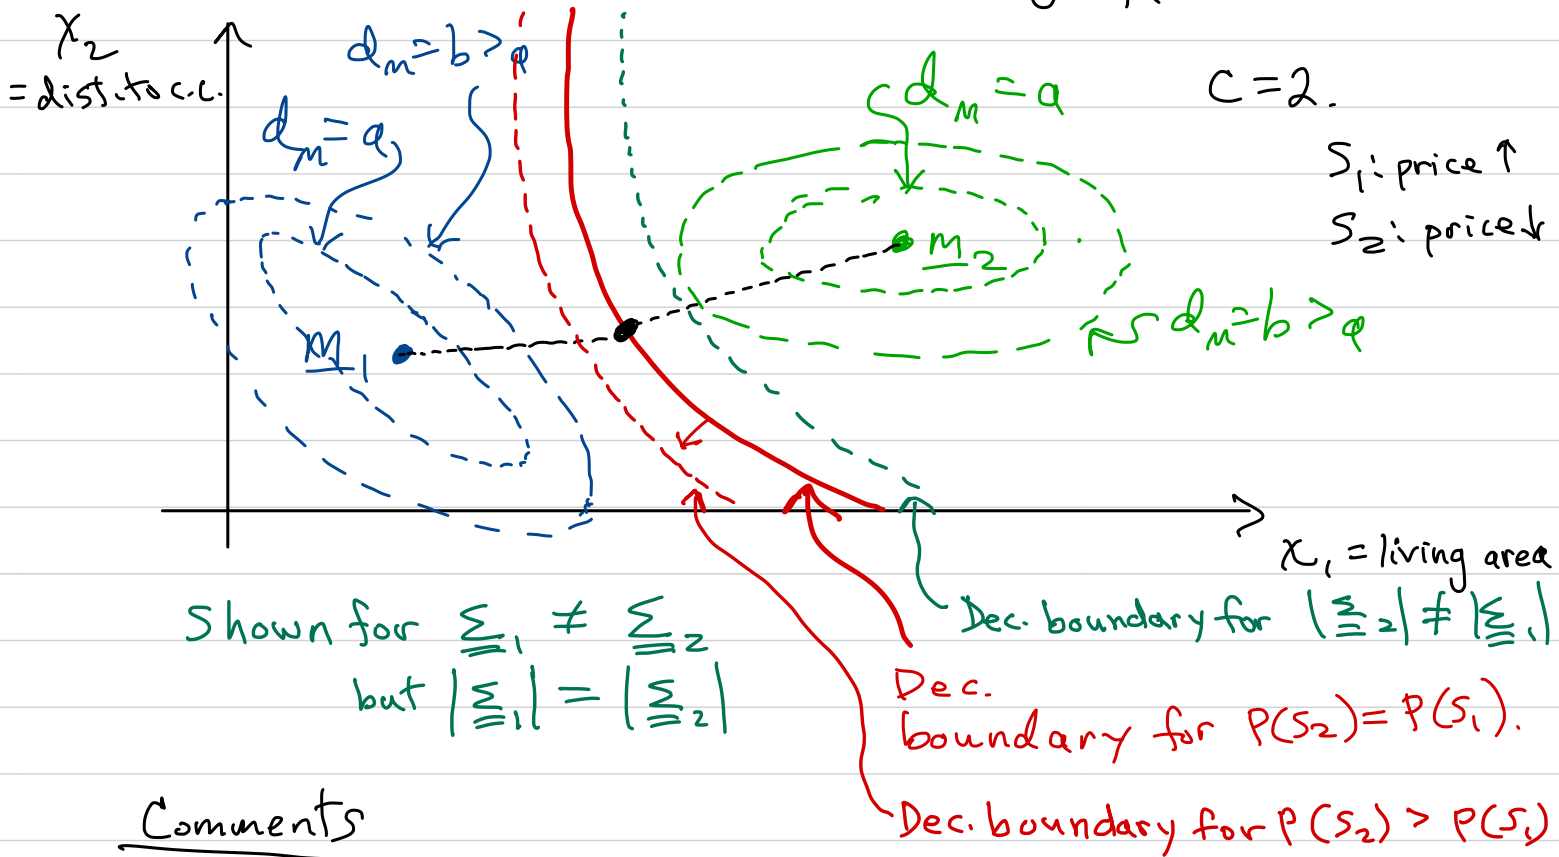 x₂
= dist. to c.c.
d_m = b > a
d_m = a
d_m = a
C = 2.
S₁: price ↑
S₂: price ↓
m₂
d_m = b > a
m₁
x₁ = living area
Shown for Σ₁ ≠ Σ₂
but |Σ₁| = |Σ₂|
Dec. boundary for |Σ₂| ≠ |Σ₁|
Dec.
boundary for P(S₂) = P(S₁).
Dec. boundary for P(S₂) > P(S₁)
Comments